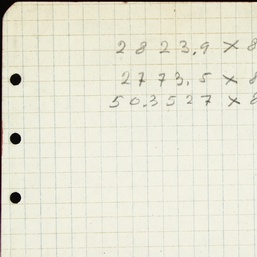 2823.9 × 8
2773.5 × 8
50.3527 × 8